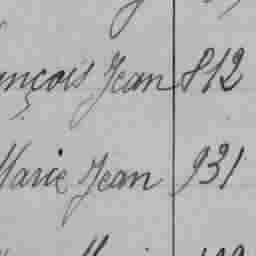 ançois Jean 812
Marie Jean 931